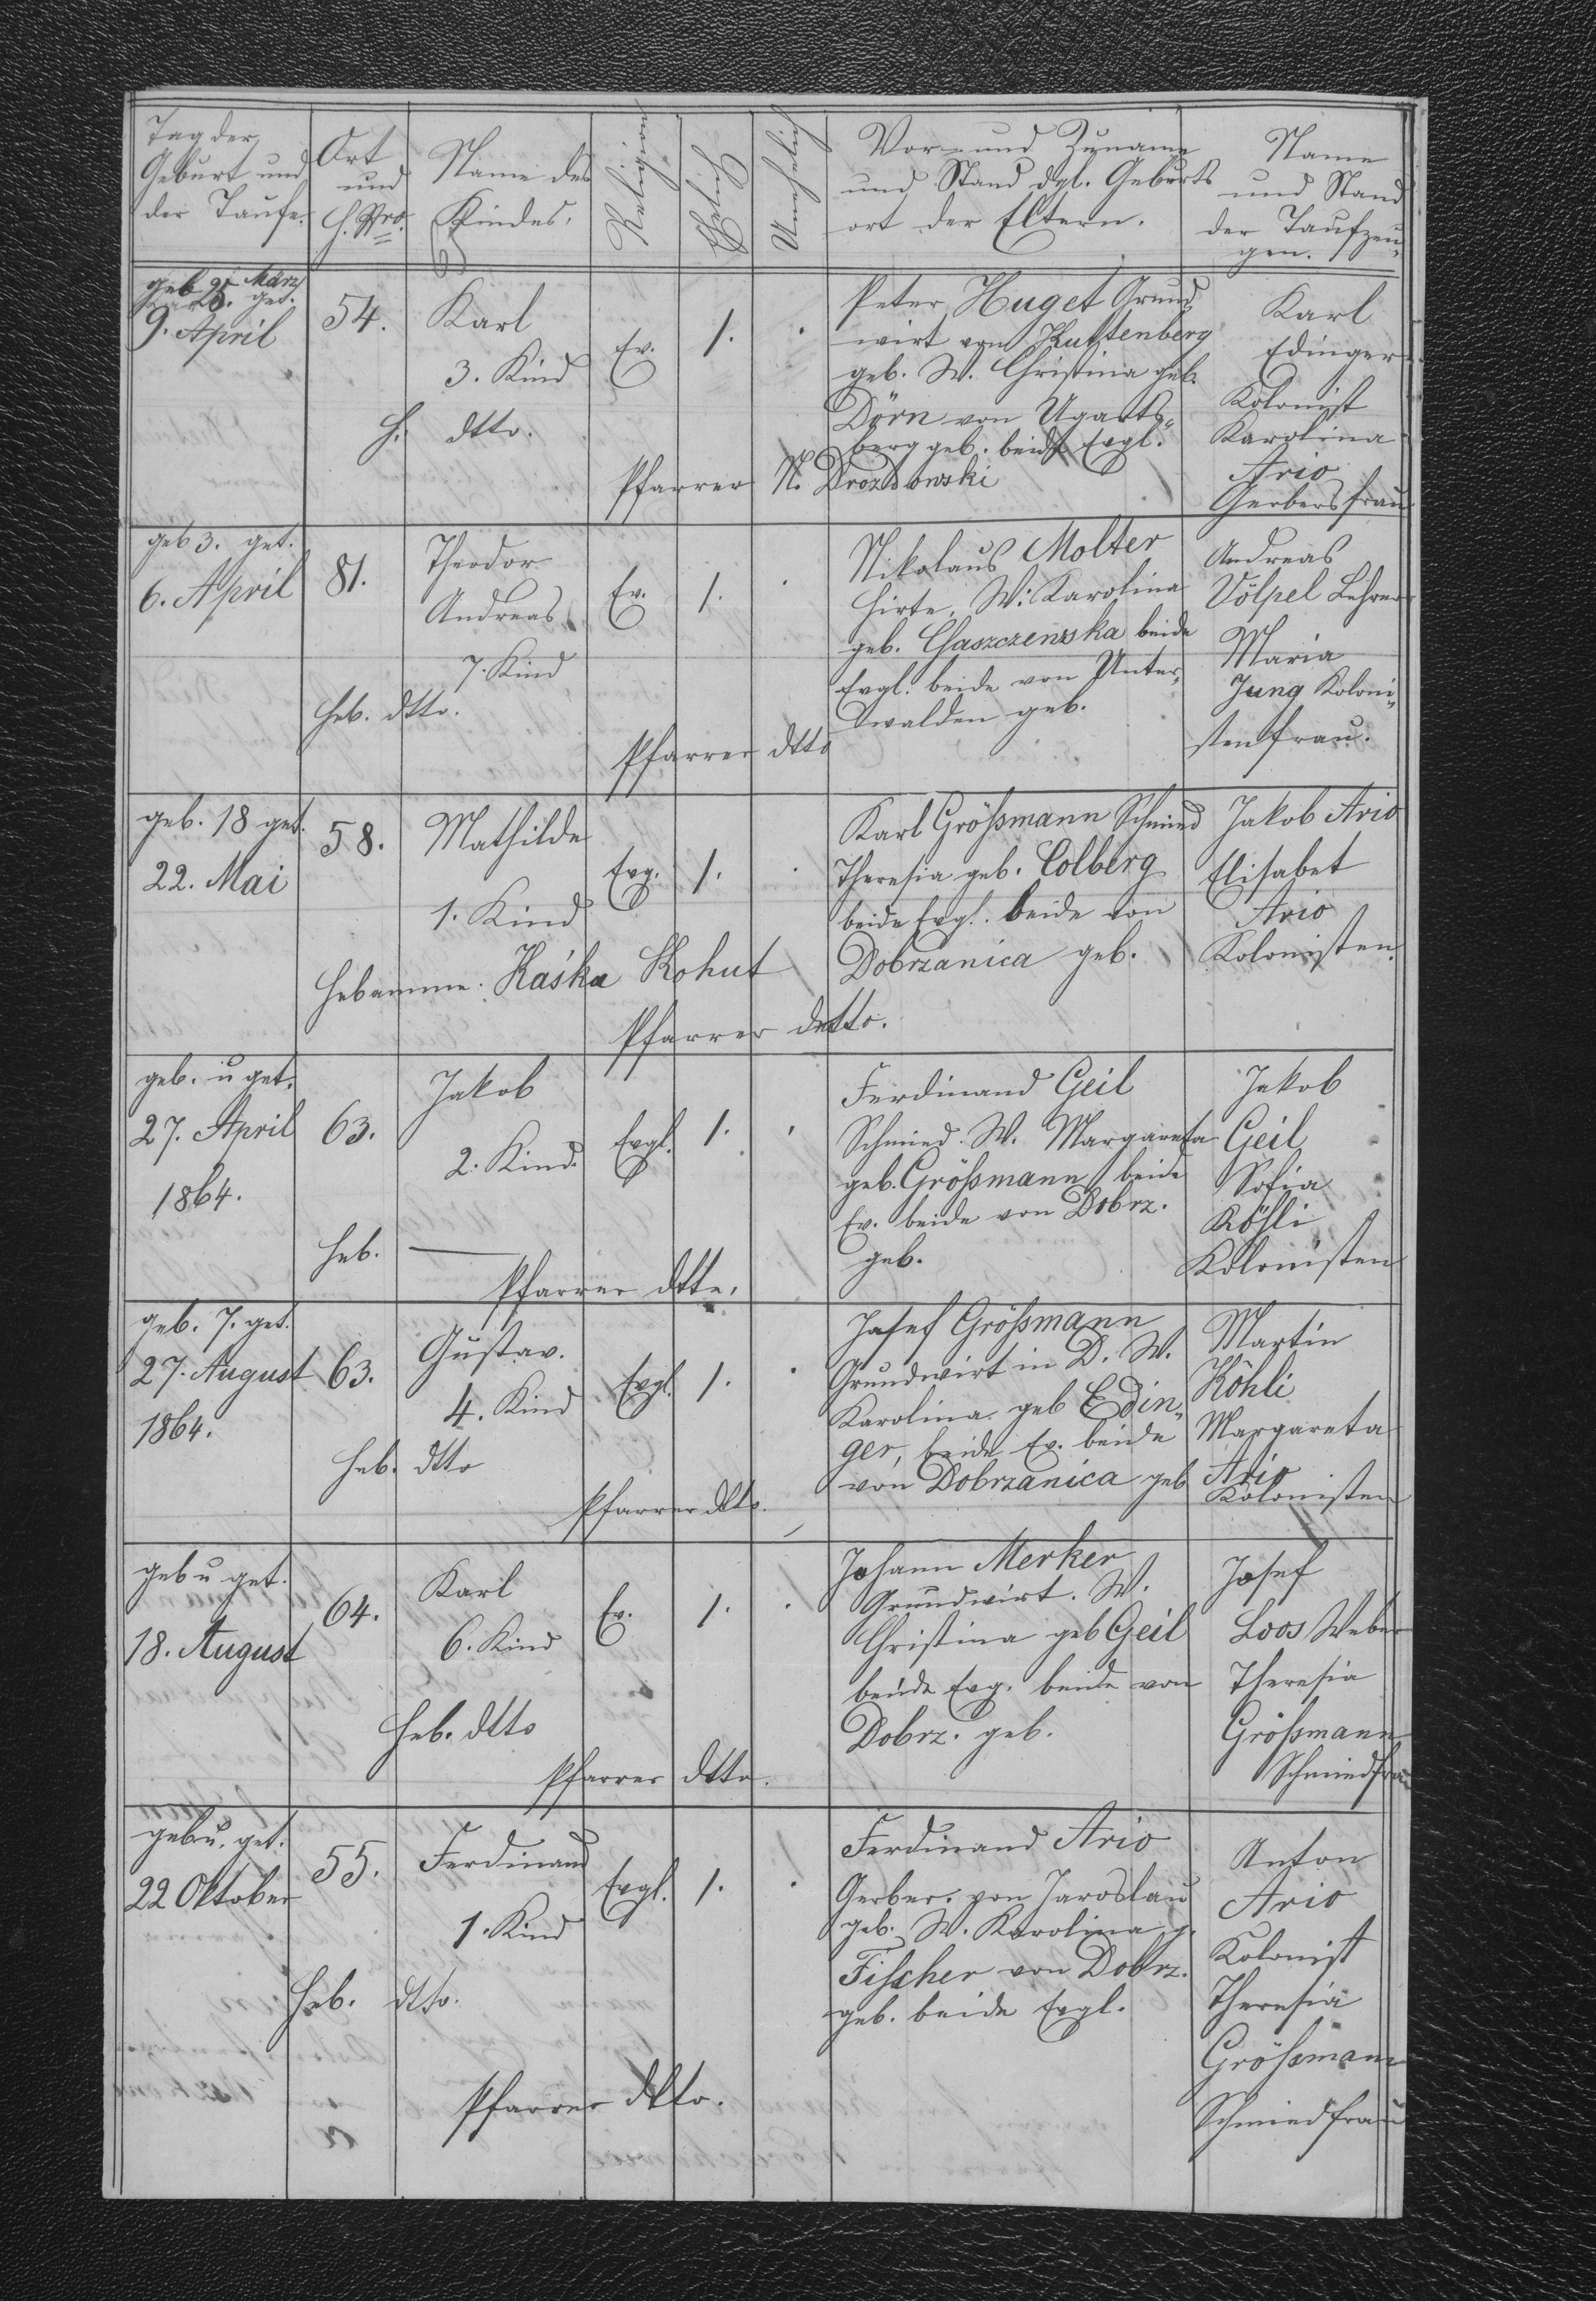 Tag der
Geburt und
der Taufe.
Ort
und
H. Nro.
Name des
Kindes.
Religion
Ehelich
Unehelich
Vor- und Zuname
und Stand dgl. Geburts
ort der Eltern.
Name
und Stand
der Taufzeu-
gen.
geb 25. März get.
9. April
54.
Karl
3. Kind
H. dtto.
Ev.
1.
Peter Huget Grund
wirt von Kuttenberg
geb. W. Christina geb.
Dörn von Ugarts-
berg geb. beide Evgl.
Pfarrer N. Drozdowski
Karl
Edinger
Kolonist
Karolina
Ario
Gerbersfrau
geb 3. get.
6. April
81.
Theodor
Andreas
7. Kind
Heb. dtto.
Ev.
1.
Nikolaus Molter
Hirte, W. Karolina
geb. Chaszczenska beide
Evgl. beide von Unter-
walden geb.
Pfarrer dtto
Andreas
Völpel Lehrer
Maria
Jung Koloni-
stenfrau.
geb. 18 get.
22. Mai
58.
Mathilde
1. Kind
Hebamme: Kaśka Kohut
Evg.
1.
Karl Größmann Schmied
Theresia geb. Colberg
beide Evgl. beide von
Dobrzanica geb.
Pfarrer detto.
Jakob Ario
Elisabet
Ario
Kolonisten.
geb. u get.
27. April
1864.
63.
Jakob
2. Kind.
Heb. —
Evgl.
1.
Ferdinand Geil
Schmied. W. Margareta
geb. Größmann beide
Ev. beide von Dobrz.
geb.
Pfarrer dtto.
Jakob
Geil
Sofia
Köhli
Kolonisten
geb. 7. get.
27. August
1864.
63.
Gustav.
4. Kind
Heb. dtto
Evgl.
1.
Josef Größmann
Grundwirt in D. W.
Karolina geb Edin-
ger, beide Ev. beide
von Dobrzanica geb
Pfarrer dtto.
Martin
Köhli
Margareta
Ario
Kolonisten
geb u get.
18. August
64.
Karl
6. Kind
Heb. dtto
Ev.
1.
Johann Merker
Grundwirt. W.
Christina geb Geil
beide Evg. beide von
Dobrz. geb.
Pfarrer dtto.
Josef
Loos Weber
Theresia
Größmann
Schmiedfrau
geb u. get.
22 Oktober
55.
Ferdinand
1. Kind
Heb. dtto.
Evgl.
1.
Ferdinand Ario
Gerber. von Jaroslau
geb. W. Karolina g.
Fischer von Dobrz.
geb. beide Evgl.
Pfarrer dtto.
Anton
Ario
Kolonist
Theresia
Größmann
Schmiedfrau